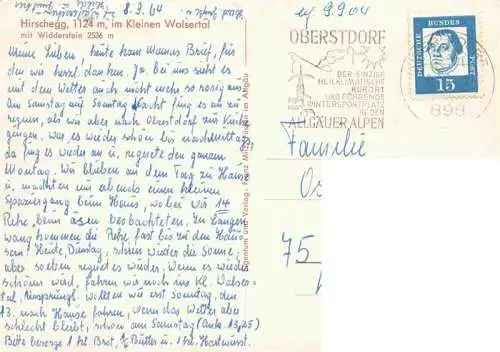 8.9.64
Hirschegg, 1124 m, im Kleinen Walsertal
mit Widderstein 2536 m
Meine Lieben, heute kam Mamas Brief, für
den wir herzl. danken. Ja, bei uns sieht es
mit dem Wetter auch nicht mehr so rosig aus.
Am Samstag auf Sonntag Nacht fing es an zu
regnen, als wir aber nach Oberstdorf zur Kirche
gingen, war es wieder schön bis nachmittags,
da fing es wieder an u. regnete den ganzen
Montag. Wir blieben an dem Tag zu Hause
u. machten nur abends einen kleinen
Spaziergang beim Haus, wobei wir 14
Rehe beim äsen beobachteten. In Langen-
wang kommen die Rehe fast bis zu den Häu-
sern. Heute, Dienstag, schien wieder die Sonne,
aber soeben regnet es wieder. Wenn es wieder
schöns wird, fahren wir noch ins Kl. Walser-
tal. Ursprüngl. wollten wir erst Sonntag, den
13. nach Hause fahren, wenn das Wetter aber
schlecht bleibt, schon am Samstag (Ank. 13,25)
Bitte besorge 1 kl. Brot, 1/2 Butter u. 1 kl. Hartwurst.
Eigentum und Verlag: Franz Milz, Reutte im Allgäu
9.9.64
OBERSTDORF
DER EINZIGE
HEILKLIMATISCHE
KURORT
UND FÜHRENDE
WINTERSPORTPLATZ
IN DEN
ALLGÄUER ALPEN
DEUTSCHE
BUNDES
POST
15
898
Familie
75